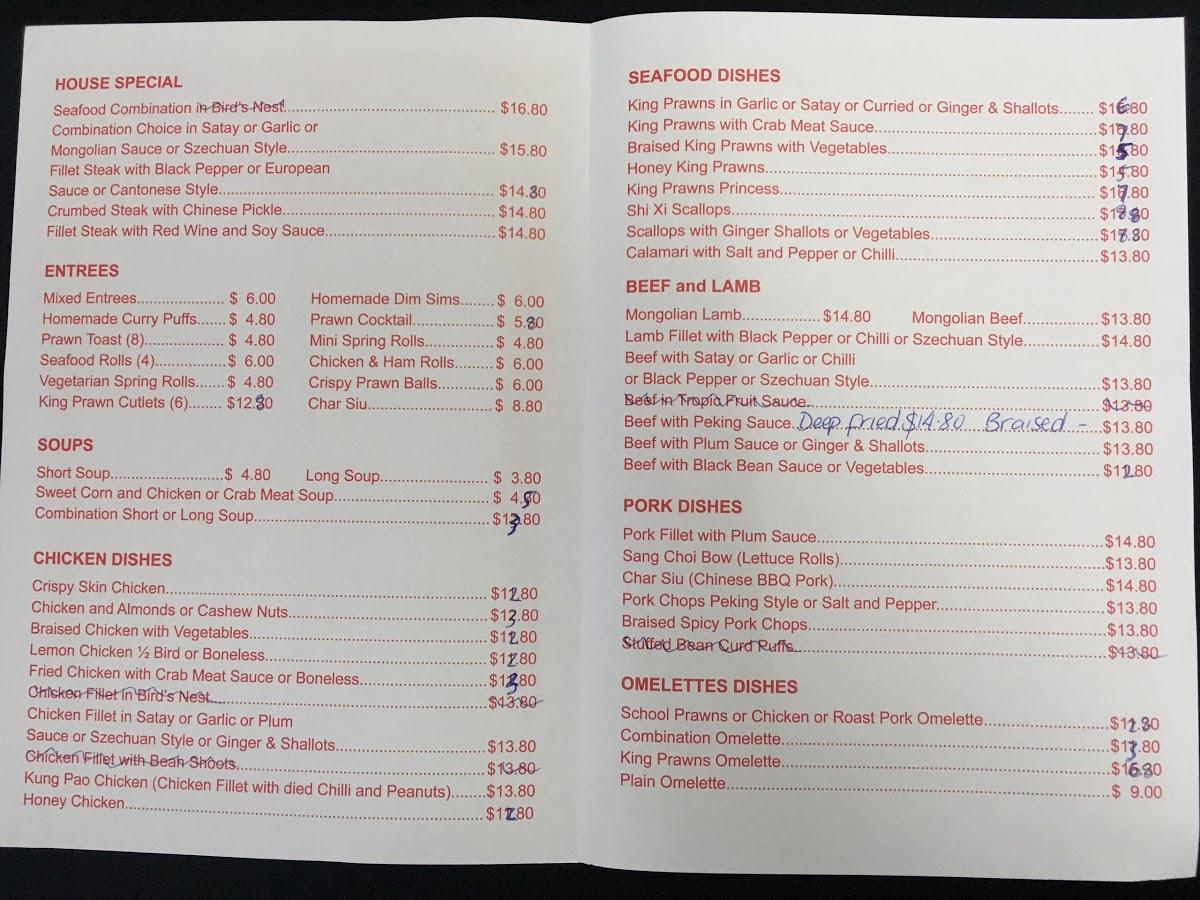 HOUSE SPECIAL
Seafood Combination in Bird's Nest $16.80
Combination Choice in Satay or Garlic or
Mongolian Sauce or Szechuan Style $15.80
Fillet Steak with Black Pepper or European
Sauce or Cantonese Style $14.80
Crumbed Steak with Chinese Pickle $14.80
Fillet Steak with Red Wine and Soy Sauce $14.80
ENTREES
Mixed Entrees $ 6.00
Homemade Curry Puffs $ 4.80
Prawn Toast (8) $ 4.80
Seafood Rolls (4) $ 6.00
Vegetarian Spring Rolls $ 4.80
King Prawn Cutlets (6) $12.80
Homemade Dim Sims $ 6.00
Prawn Cocktail $ 5.80
Mini Spring Rolls $ 4.80
Chicken & Ham Rolls $ 6.00
Crispy Prawn Balls $ 6.00
Char Siu $ 8.80
SOUPS
Short Soup $ 4.80 Long Soup $ 3.80
Sweet Corn and Chicken or Crab Meat Soup $ 4.50
Combination Short or Long Soup $13.80
CHICKEN DISHES
Crispy Skin Chicken $12.80
Chicken and Almonds or Cashew Nuts $13.80
Braised Chicken with Vegetables $12.80
Lemon Chicken ½ Bird or Boneless $12.80
Fried Chicken with Crab Meat Sauce or Boneless $13.80
Chicken Fillet in Bird's Nest $13.80
Chicken Fillet in Satay or Garlic or Plum
Sauce or Szechuan Style or Ginger & Shallots $13.80
Chicken Fillet with Bean Shoots $13.80
Kung Pao Chicken (Chicken Fillet with died Chilli and Peanuts) $13.80
Honey Chicken $12.80
SEAFOOD DISHES
King Prawns in Garlic or Satay or Curried or Ginger & Shallots $16.80
King Prawns with Crab Meat Sauce $17.80
Braised King Prawns with Vegetables $15.80
Honey King Prawns $15.80
King Prawns Princess $17.80
Shi Xi Scallops
Scallops with Ginger Shallots or Vegetables
Calamari with Salt and Pepper or Chilli $13.80
BEEF and LAMB
Mongolian Lamb $14.80 Mongolian Beef $13.80
Lamb Fillet with Black Pepper or Chilli or Szechuan Style $14.80
Beef with Satay or Garlic or Chilli
or Black Pepper or Szechuan Style $13.80
Beef in Tropic Fruit Sauce $13.80
Beef with Peking Sauce Deep fried $14.80 Braised - $13.80
Beef with Plum Sauce or Ginger & Shallots $13.80
Beef with Black Bean Sauce or Vegetables $12.80
PORK DISHES
Pork Fillet with Plum Sauce $14.80
Sang Choi Bow (Lettuce Rolls) $13.80
Char Siu (Chinese BBQ Pork) $14.80
Pork Chops Peking Style or Salt and Pepper $13.80
Braised Spicy Pork Chops $13.80
Stuffed Bean Curd Puffs $13.80
OMELETTES DISHES
School Prawns or Chicken or Roast Pork Omelette $12.80
Combination Omelette $13.80
King Prawns Omelette $16.80
Plain Omelette $ 9.00